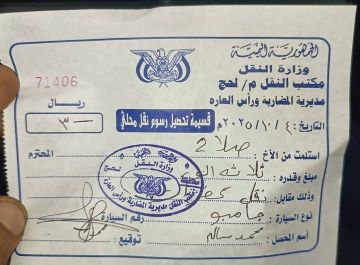 الجمهورية اليمنية
وزارة النقل
مكتب النقل م/ لحج
مديرية المضاربة ورأس العاره
71406
ريال
-٣٠
قسيمة تحصيل رسوم نقل محلي
التاريخ: ٤ / ١٠ / ٢٠٢٥م
استلمت من الأخ: صلاح المحترم
مبلغ وقدره: ثلاثه
وذلك مقابل: نقل
نوع السيارة: جامبو رقم السيارة
اسم المحصل: محمد سالم توقيع:
وزارة النقل
مكتب النقل مديرية المضاربة ورأس العارة